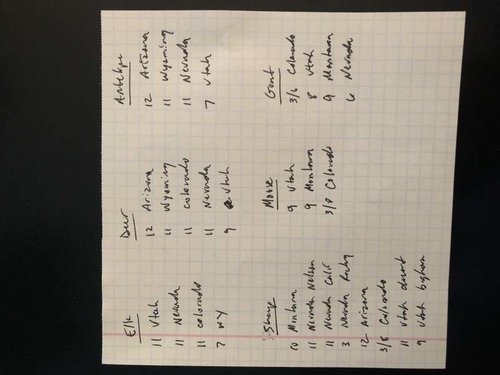 Elk
11 Utah
11 Nevada
11 Colorado
7 WY
Deer
12 Arizona
11 Wyoming
11 Colorado
11 Nevada
9 Utah
Antelope
12 Arizona
11 Wyoming
11 Nevada
7 Utah
Sheep
10 Montana
11 Nevada Nelson
11 Nevada Calif
3 Nevada Rocky
12 Arizona
3/8 Colorado
11 Utah desert
9 Utah bighorn
Moose
9 Utah
9 Montana
3/8 Colorado
Goat
3/6 Colorado
8 Utah
9 Montana
6 Nevada